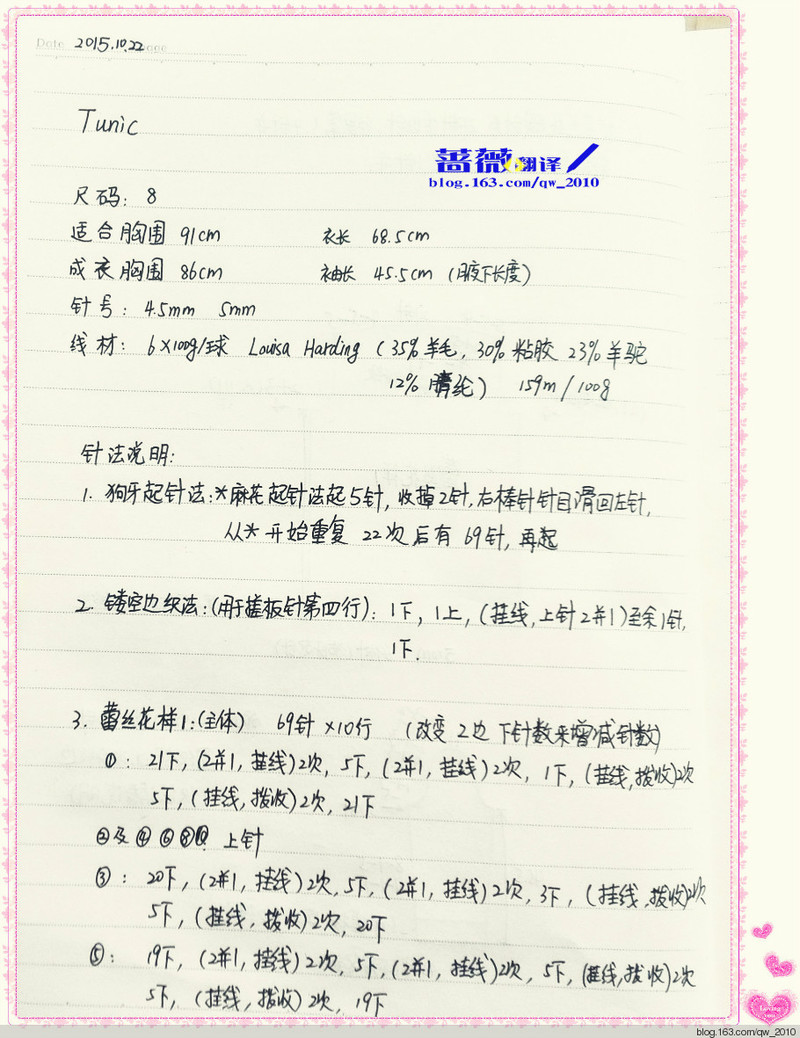 Date 2015.10.22
Tunic
蔷薇翻译
blog.163.com/qw_2010
尺码: 8
适合胸围 91cm 衣长 68.5cm
成衣胸围 86cm 袖长 45.5cm (腋下长度)
针号: 4.5mm 5mm
线材: 6×100g/球 Louisa Harding (35%羊毛, 30%粘胶 23%羊驼
12%腈纶) 159m/100g
针法说明:
1. 狗牙起针法:*麻花起针法起5针,收掉2针,右棒针针目滑回左针,
从*开始重复 22次后有 69针,再起
2. 镂空边织法:(用于搓板针第四行): 1下, 1上, (挂线,上针2并1)至余1针,
1下.
3. 蕾丝花样1:(主体) 69针×10行 (改变 2边 下针数来增减针数)
①: 21下, (2并1, 挂线)2次, 5下, (2并1, 挂线)2次, 1下, (挂线,拨收)2次
5下, (挂线, 拨收)2次, 21下
②及④⑥⑧⑩ 上针
③: 20下, (2并1, 挂线)2次, 5下, (2并1, 挂线)2次, 3下, (挂线,拨收)2次
5下, (挂线, 拨收)2次, 20下
⑤: 19下, (2并1, 挂线)2次, 5下, (2并1, 挂线)2次, 5下, (挂线,拨收)2次
5下, (挂线, 拨收)2次, 19下
blog.163.com/qw_2010